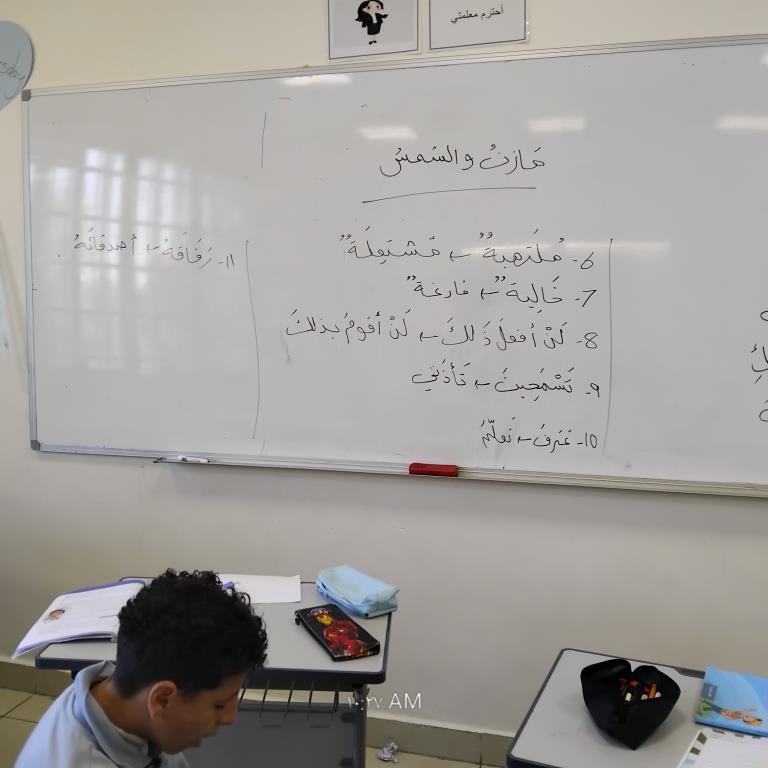 أحترم معلمتي
مَازنُ والشمسُ
6- مُلتَهبةٌ ← مُشتَعِلَةٌ
7- خَالِيةٌ ← فارغةٌ
8- لَنْ أفعلَ ذَلكَ ← لَنْ أقومَ بذلكَ
9- تَسْمَحِينَ ← تَأذَني
10- عَرَفَ ← تَعلّمَ
11- رِفَاقَهُ ← أصدقائَهُ
١٠:٢٧ AM